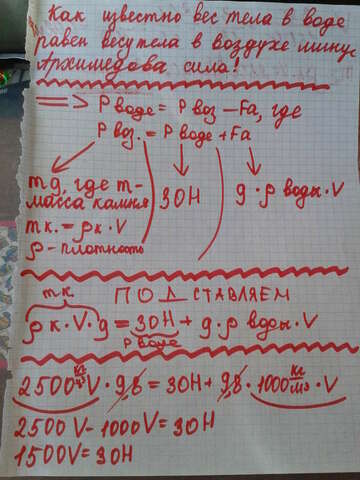 Как известно вес тела в воде
равен весу тела в воздухе минус
Архимедова сила!
=> P воде = P воз – Fa, где
P воз. = P воде + Fa
mg, где m-
масса камня
mк. = ρк · V
ρ - плотность
30Н
g · ρ воды · V
mк.
ПОДСТАВЛЯЕМ
ρк · V · g = 30Н + g · ρ воды · V
P воде
2500 кг/м³ V · 9,8 = 30Н + 9,8 · 1000 кг/м³ · V
2500 V - 1000V = 30Н
1500V = 30Н